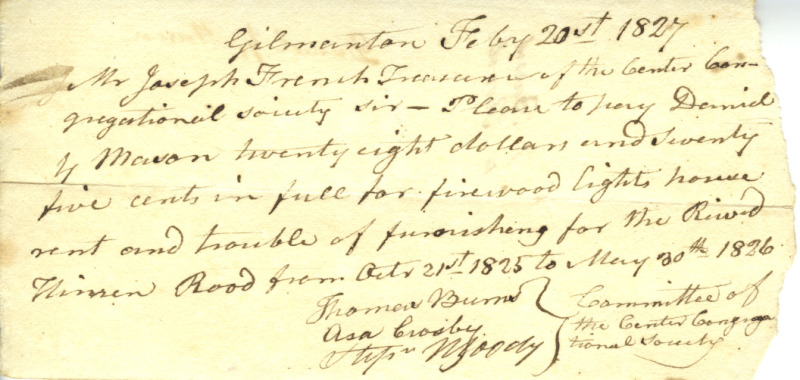 Gilmanton Feby 20st 1827
Mr Joseph French Treasurer of the Center Con-
gregational society sir – Please to pay Daniel
y Mason twenty eight dollars and seventy
five cents in full for firewood lights house
rent and trouble of furnishing for the Revd
Heman Rood from Octr 21st 1825 to May 30th 1826
Thomas Burns
Asa Crosby
Stepn Moody
Committee of
the Center Congrega
tional Society